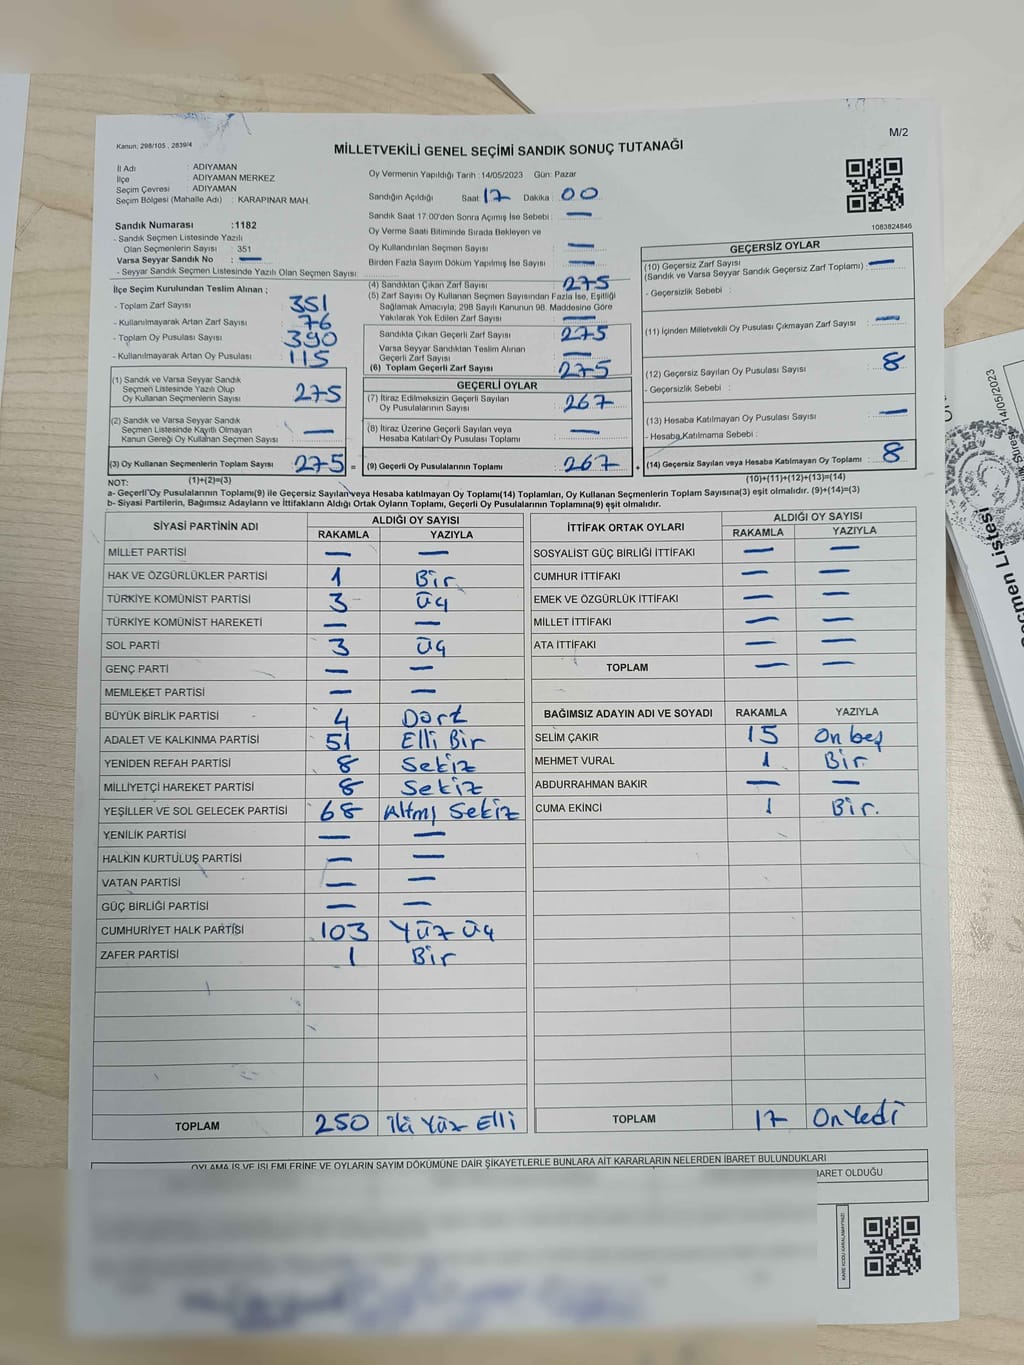 Kanun; 298/105 , 2839/4
M/2
MİLLETVEKİLİ GENEL SEÇİMİ SANDIK SONUÇ TUTANAĞI
İl Adı : ADIYAMAN
İlçe : ADIYAMAN MERKEZ
Seçim Çevresi : ADIYAMAN
Seçim Bölgesi (Mahalle Adı) : KARAPINAR MAH.
Oy Vermenin Yapıldığı Tarih : 14/05/2023 Gün: Pazar
Sandığın Açıldığı Saat 17 Dakika : 00
Sandık Saat 17.00'den Sonra Açımış İse Sebebi : —
Oy Verme Saati Bitiminde Sırada Bekleyen ve
Oy Kullandırılan Seçmen Sayısı : —
Birden Fazla Sayım Döküm Yapılmış İse Sayısı : —
1083824846
Sandık Numarası :1182
- Sandık Seçmen Listesinde Yazılı
Olan Seçmenlerin Sayısı : 351
Varsa Seyyar Sandık No : —
- Seyyar Sandık Seçmen Listesinde Yazılı Olan Seçmen Sayısı:
İlçe Seçim Kurulundan Teslim Alınan ;
- Toplam Zarf Sayısı : 351
- Kullanılmayarak Artan Zarf Sayısı : 76
- Toplam Oy Pusulası Sayısı : 390
- Kullanılmayarak Artan Oy Pusulası : 115
(1) Sandık ve Varsa Seyyar Sandık
Seçmen Listesinde Yazılı Olup
Oy Kullanan Seçmenlerin Sayısı : 275
(2) Sandık ve Varsa Seyyar Sandık
Seçmen Listesinde Kayıtlı Olmayan
Kanun Gereği Oy Kullanan Seçmen Sayısı : —
(3) Oy Kullanan Seçmenlerin Toplam Sayısı : 275 =
(4) Sandıktan Çıkan Zarf Sayısı : 275
(5) Zarf Sayısı Oy Kullanan Seçmen Sayısından Fazla İse, Eşitliği
Sağlamak Amacıyla; 298 Sayılı Kanunun 98. Maddesine Göre
Yakılarak Yok Edilen Zarf Sayısı : —
Sandıkta Çıkan Geçerli Zarf Sayısı : 275
Varsa Seyyar Sandıktan Teslim Alınan
Geçerli Zarf Sayısı : —
(6) Toplam Geçerli Zarf Sayısı : 275
GEÇERLİ OYLAR
(7) İtiraz Edilmeksizin Geçerli Sayılan
Oy Pusulalarının Sayısı : 267
(8) İtiraz Üzerine Geçerli Sayılan veya
Hesaba Katılan Oy Pusulası Toplamı : —
(9) Geçerli Oy Pusulalarının Toplamı : 267 +
GEÇERSİZ OYLAR
(10) Geçersiz Zarf Sayısı
(Sandık ve Varsa Seyyar Sandık Geçersiz Zarf Toplamı) : —
- Geçersizlik Sebebi :
(11) İçinden Milletvekili Oy Pusulası Çıkmayan Zarf Sayısı : —
(12) Geçersiz Sayılan Oy Pusulası Sayısı : 8
- Geçersizlik Sebebi :
(13) Hesaba Katılmayan Oy Pusulası Sayısı : —
- Hesaba Katılmama Sebebi :
(14) Geçersiz Sayılan veya Hesaba Katılmayan Oy Toplamı : 8
NOT: (1)+(2)=(3) (10)+(11)+(12)+(13)=(14)
a- Geçerli Oy Pusulalarının Toplamı(9) ile Geçersiz Sayılan veya Hesaba katılmayan Oy Toplamı(14) Toplamları, Oy Kullanan Seçmenlerin Toplam Sayısına(3) eşit olmalıdır. (9)+(14)=(3)
b- Siyasi Partilerin, Bağımsız Adayların ve İttifakların Aldığı Ortak Oyların Toplamı, Geçerli Oy Pusulalarının Toplamına(9) eşit olmalıdır.
SİYASİ PARTİNİN ADI ALDIĞI OY SAYISI
RAKAMLA YAZIYLA
MİLLET PARTİSİ — —
HAK VE ÖZGÜRLÜKLER PARTİSİ 1 Bir
TÜRKİYE KOMÜNİST PARTİSİ 3 Üç
TÜRKİYE KOMÜNİST HAREKETİ — —
SOL PARTİ 3 Üç
GENÇ PARTİ — —
MEMLEKET PARTİSİ — —
BÜYÜK BİRLİK PARTİSİ 4 Dört
ADALET VE KALKINMA PARTİSİ 51 Elli Bir
YENİDEN REFAH PARTİSİ 8 Sekiz
MİLLİYETÇİ HAREKET PARTİSİ 8 Sekiz
YEŞİLLER VE SOL GELECEK PARTİSİ 68 Altmış Sekiz
YENİLİK PARTİSİ — —
HALKIN KURTULUŞ PARTİSİ — —
VATAN PARTİSİ — —
GÜÇ BİRLİĞİ PARTİSİ — —
CUMHURİYET HALK PARTİSİ 103 Yüz Üç
ZAFER PARTİSİ 1 Bir
TOPLAM 250 İki Yüz Elli
İTTİFAK ORTAK OYLARI ALDIĞI OY SAYISI
RAKAMLA YAZIYLA
SOSYALİST GÜÇ BİRLİĞİ İTTİFAKI — —
CUMHUR İTTİFAKI — —
EMEK VE ÖZGÜRLÜK İTTİFAKI — —
MİLLET İTTİFAKI — —
ATA İTTİFAKI — —
TOPLAM — —
BAĞIMSIZ ADAYIN ADI VE SOYADI RAKAMLA YAZIYLA
SELİM ÇAKIR 15 On beş
MEHMET VURAL 1 Bir
ABDURRAHMAN BAKIR — —
CUMA EKİNCİ 1 Bir.
TOPLAM 17 On Yedi
OYLAMA İŞ VE İŞLEMLERİNE VE OYLARIN SAYIM DÖKÜMÜNE DAİR ŞİKAYETLERLE BUNLARA AİT KARARLARIN NELERDEN İBARET BULUNDUKLARI
BARET OLDUĞU
KARE KODU KARALAMAYINIZ!
14/05/2023
eçmen Listesi